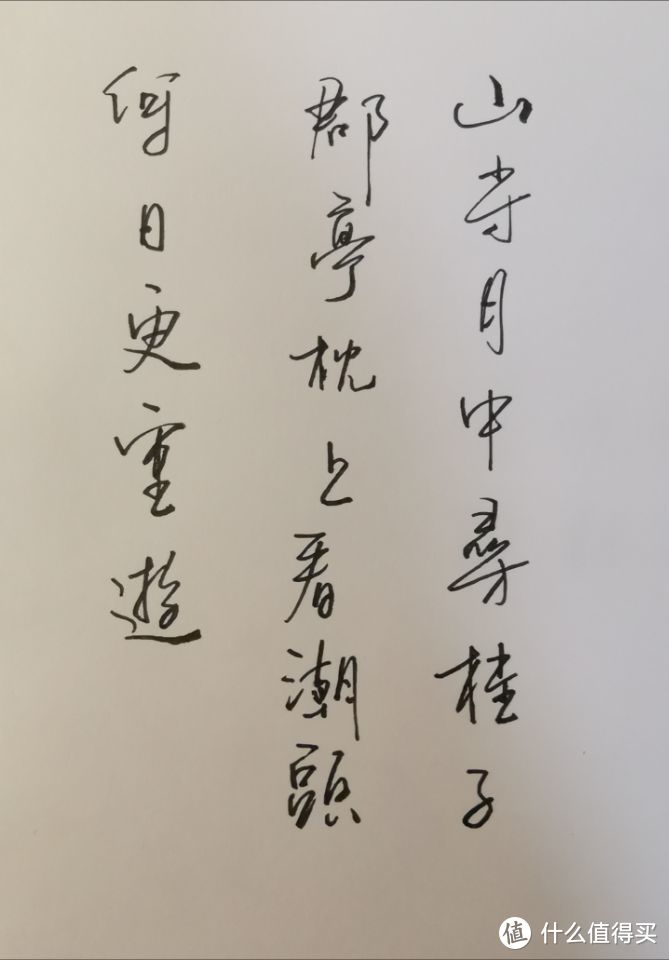 山寺月中尋桂子
郡亭枕上看潮頭
何日更重遊
值 什么值得买